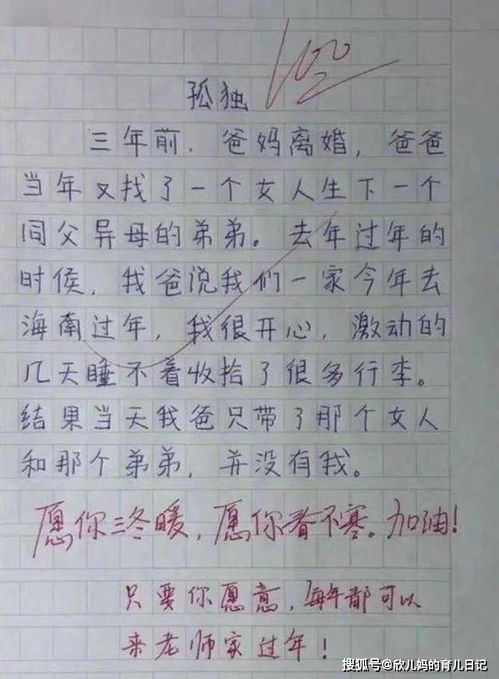 100
孤独
三年前.爸妈离婚,爸爸
当年又找了一个女人生下一个
同父异母的弟弟。去年过年的
时侯,我爸说我们一家今年去
海南过年,我很开心,激动的
几天睡不着收拾了很多行李。
结果当天我爸只带了那个女人
和那个弟弟,并没有我。
愿你三冬暖,愿你春不寒。加油!
只要你愿意,每年都可以
来老师家过年!
搜狐号@欣儿妈的育儿日记